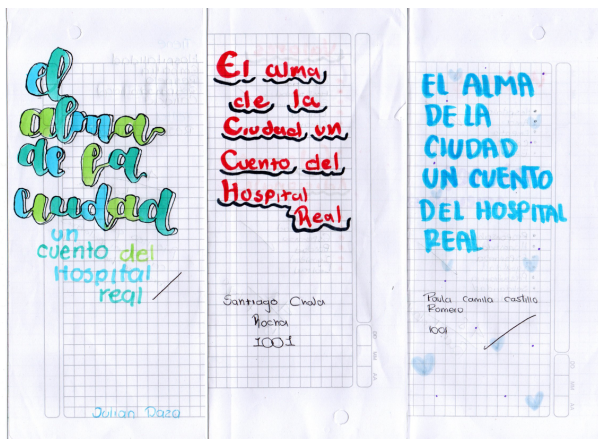 el
alma
de la
ciudad
un
cuento del
Hospital
real
Julian Daza
El alma
de la
Ciudad, un
Cuento del
Hospital
Real
Santiago Chala
Rocha
1001
EL ALMA
DE LA
CIUDAD
UN CUENTO
DEL HOSPITAL
REAL
Paula camila castillo
Romero
1001